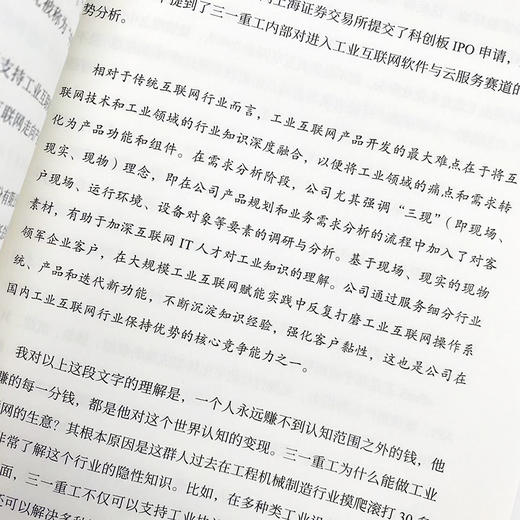 上海证券交易所提交了科创板 IPO 申请,
提到了三一重工内部对进入工业互联网软件与云服务赛道的
势分析。
相对于传统互联网行业而言,工业互联网产品开发的最大难点在于将互
联网技术和工业领域的行业知识深度融合,以便将工业领域的痛点和需求转
化为产品功能和组件。在需求分析阶段,公司尤其强调“三现”(即现场、
现实、现物)理念,即在公司产品规划和业务需求分析的流程中加入了对客
户现场、运行环境、设备对象等要素的调研与分析。基于现场、现实的现物
素材,有助于加深互联网 IT 人才对工业知识的理解。公司通过服务细分行业
领军企业客户,在大规模工业互联网赋能实践中反复打磨工业互联网操作系
统、产品和迭代新功能,不断沉淀知识经验,强化客户黏性,这也是公司在
国内工业互联网行业保持优势的核心竞争能力之一。
我对以上这段文字的理解是,一个人永远赚不到认知范围之外的钱,他
赚的每一分钱,都是他对这个世界认知的变现。三一重工为什么能做工业
联网的生意?其根本原因是这群人过去在工程机械制造行业摸爬滚打 30 多
非常了解这个行业的隐性知识。比如,在多种类工业设
面,三一重工不仅可以支持工业
还可以解决多种
支持工业互
联网走向